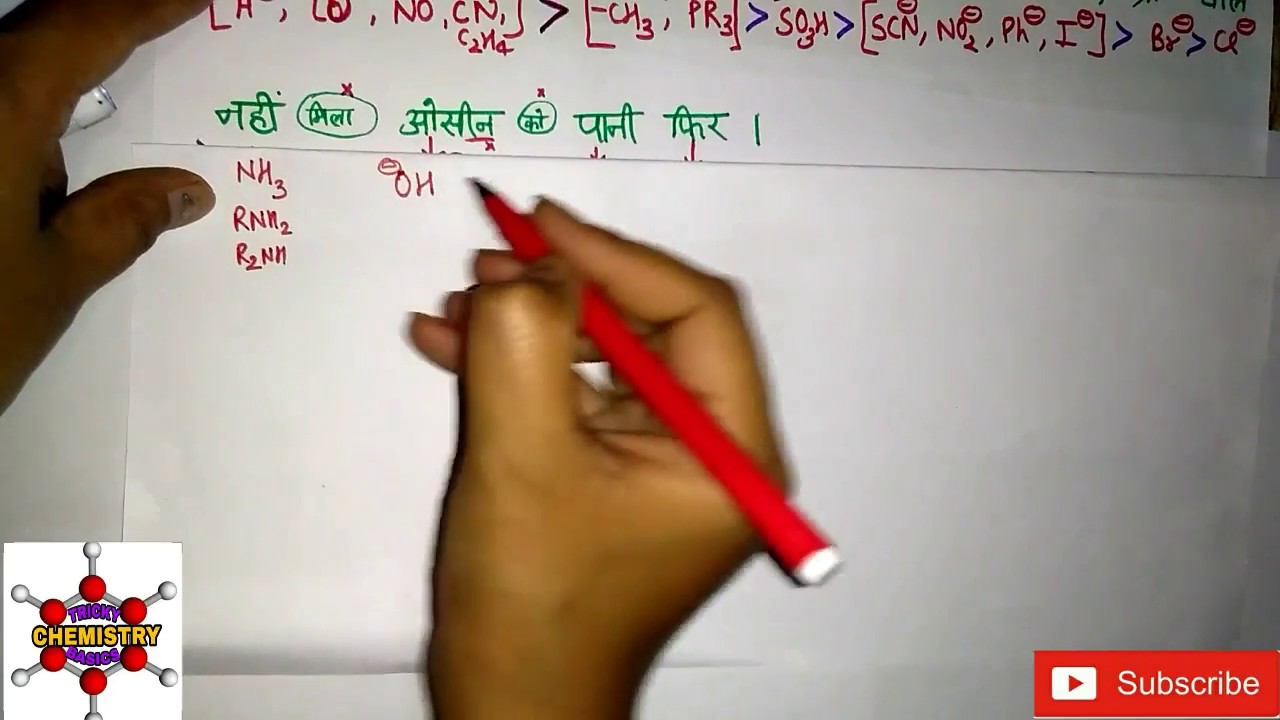 [H⁻, CO, NO, CN, C₂H₄] > [⁻CH₃, PR₃] > SO₃H > [SCN⊖, NO₂⊖, Ph⊖, I⊖] > Br⊖ > Cl⊖
नहीं मिला ओसीन को पानी फिर ।
NH₃ ⊖OH
RNH₂
R₂NH
TRICKY
CHEMISTRY
BASICS
Subscribe